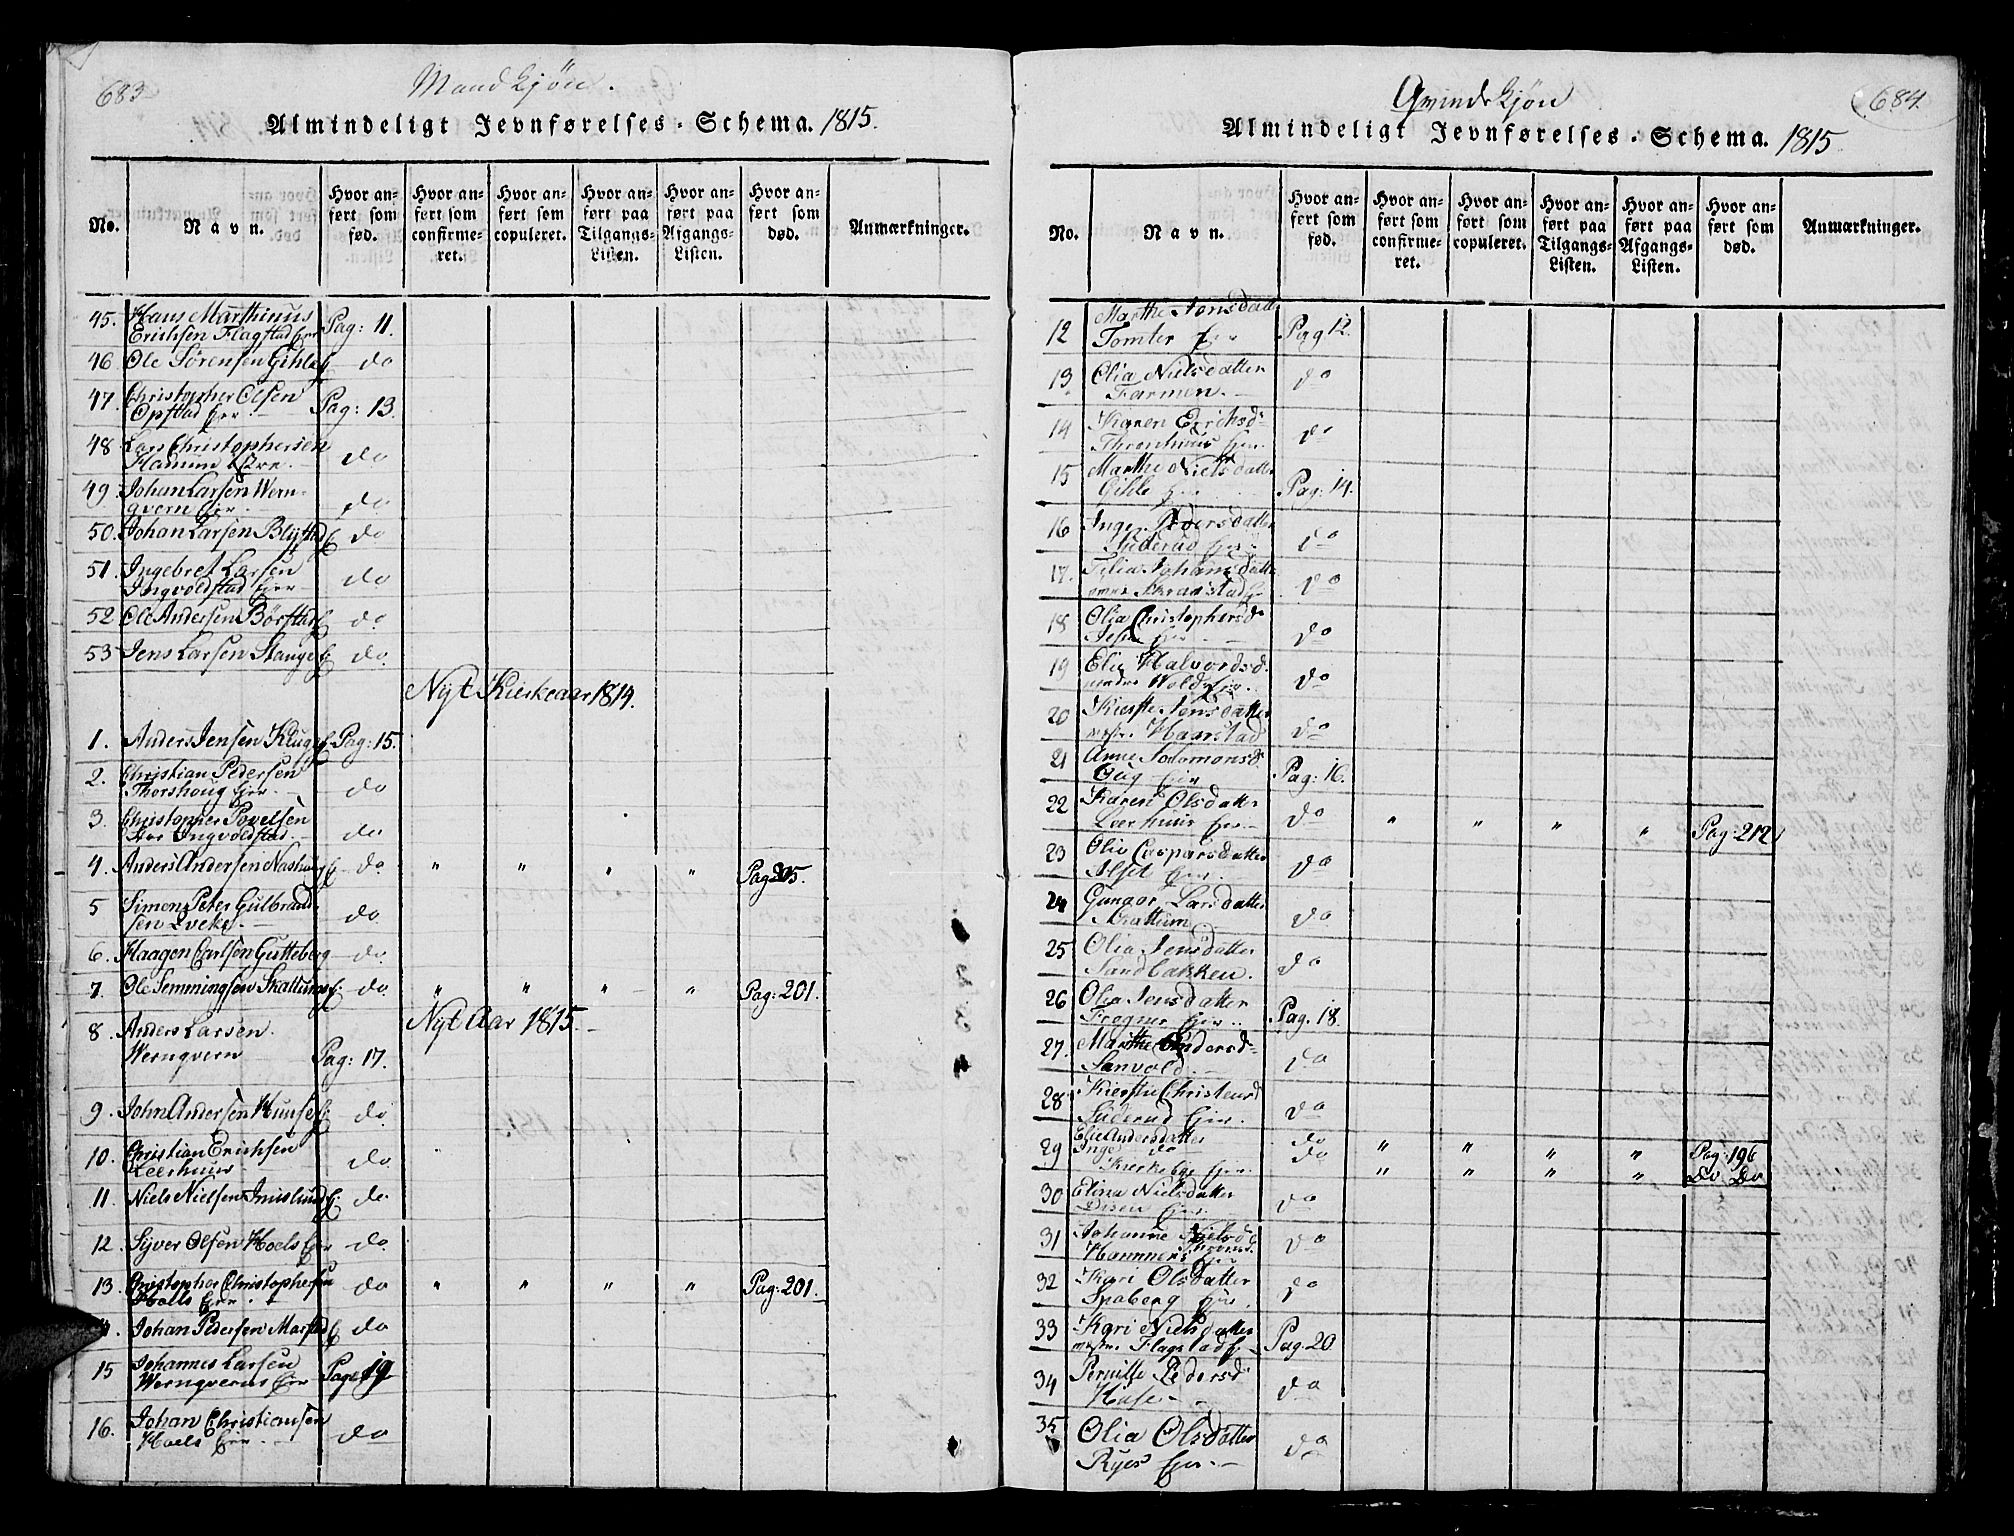 683
Mandkjøn.
Almindeligt Jevnførelses-Schema. 1815.
No.
Navn.
Hvor anført som fød.
Hvor anført som confirmeret.
Hvor anført som copuleret.
Hvor anført paa Tilgangs-Listen.
Hvor anført paa Afgangs-Listen.
Hvor anført som død.
Anmærkninger.
45. Hans Marthinus
Erichsen Flagstad Eier Pag: 11.
46 Ole Sørensen Gihle do
47. Christopher Olsen
Opstad Eier. Pag: 13.
48 Lars Christophersen
Hammer do
49. Johan Larsen Wern-
qvern Eier. do
50. Johan Larsen Blystad do
51. Ingebret Larsen
Ingvoldstad Eier do
52 Ole Andersen Børstad do
53 Jens Larsen Stange do
Nyt Kirkeaar 1814.
1. Anders Jensen Kluge Pag: 15.
2. Christian Pedersen
Thorshoug Eier. do
3. Christopher Povelsen
Stor Ingvoldstad. do
4. Anders Andersen do. " " " " Pag 205.
5 Simon Peter Gulbrand-
sen Eveke. do
6. Haagen Carlsen Gutteberg do.
7. Ole Semmingsen Skattums do. " " " " Pag: 201.
Nyt Aar 1815.
8. Anders Larsen
Wernqvern Pag: 17.
9. John Andersen Hunse do.
10. Christian Erichsen
Leerhuus do
11. Niels Nielsen Imislund do.
12. Syver Olsen Hoels Eier do.
13. Christopher Christophersen
Hoels Eier do " " " " Pag: 201.
14. Johan Pedersen Marstad do
15 Johannes Larsen
Wernqverns Eier Pag: 19
16. Johan Christiansen
Hoels Eier do
684.
Qvindekjøn
Almindeligt Jevnførelses-Schema. 1815
No.
Navn.
Hvor anført som fød.
Hvor anført som confirmeret.
Hvor anført som copuleret.
Hvor anført paa Tilgangs-Listen.
Hvor anført paa Afgangs-Listen.
Hvor anført som død.
Anmærkninger.
12 Marthe Jensdatter
Tomter Eier Pag 12.
13. Olia Nielsdatter
Farmen. do
14 Karen Erichsd
Eier. do
15 Marthe Nielsdatter
Gihle Eier Pag: 14.
16 Inger Pedersdatter
Suderud Eier. do
17. Johansdatter
Skramstad do
18 Olia Christophersd
Eier do
19 Elie Halvordsd.
Wolds Eier. do
20 Kierstie Jensdatter
Haarstad do
21 Anne Salomonsd
Aag Eier Pag: 16.
22 Karen Olsdatter
Leerhuus Eier do " " " " Pag: 212
23 Olia Caspersdatter
Alset Eier. do
24 Gunnor Larsdatter
Skattum do
25 Olia Jensdatter
Sandbakken. do
26 Olia Jensdatter
Frogner Eier. Pag. 18.
27. Marthe Andersd
Sanvold. do
28 Kierstie Christensd
Suderud Eier. do
29 Elie Andersdatter do " " " " Pag: 196
Inger do do
Kirkebye Eier. " " " " Do Do
30 Elina Nielsdatter
Disen Eier. do
31 Johanne Nielsd
Hammers Eier do
32 Kari Olsdatter
Spaberg Eier. do
33 Kari Nielsdatter
Flagstad Pag. 20
34 Pernille Pedersd
Huse do
35 Olia Olsdatter
Ryes Eier. do